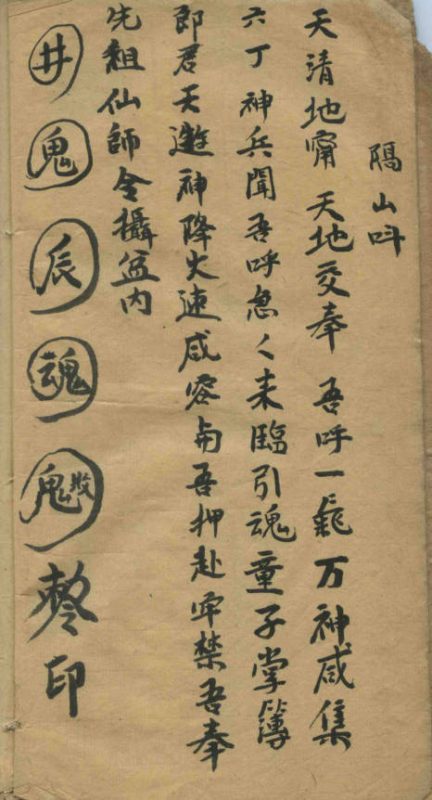 隔山呌
天清地甯天地交奉吾呼一炁万神咸集
六丁神兵聞吾呼急々来臨引魂童子掌簿
郎君天遊神降火速咸容与吾押赴牢禁吾奉
先祖仙師令攝盆内
井 鬼 辰 魂 印